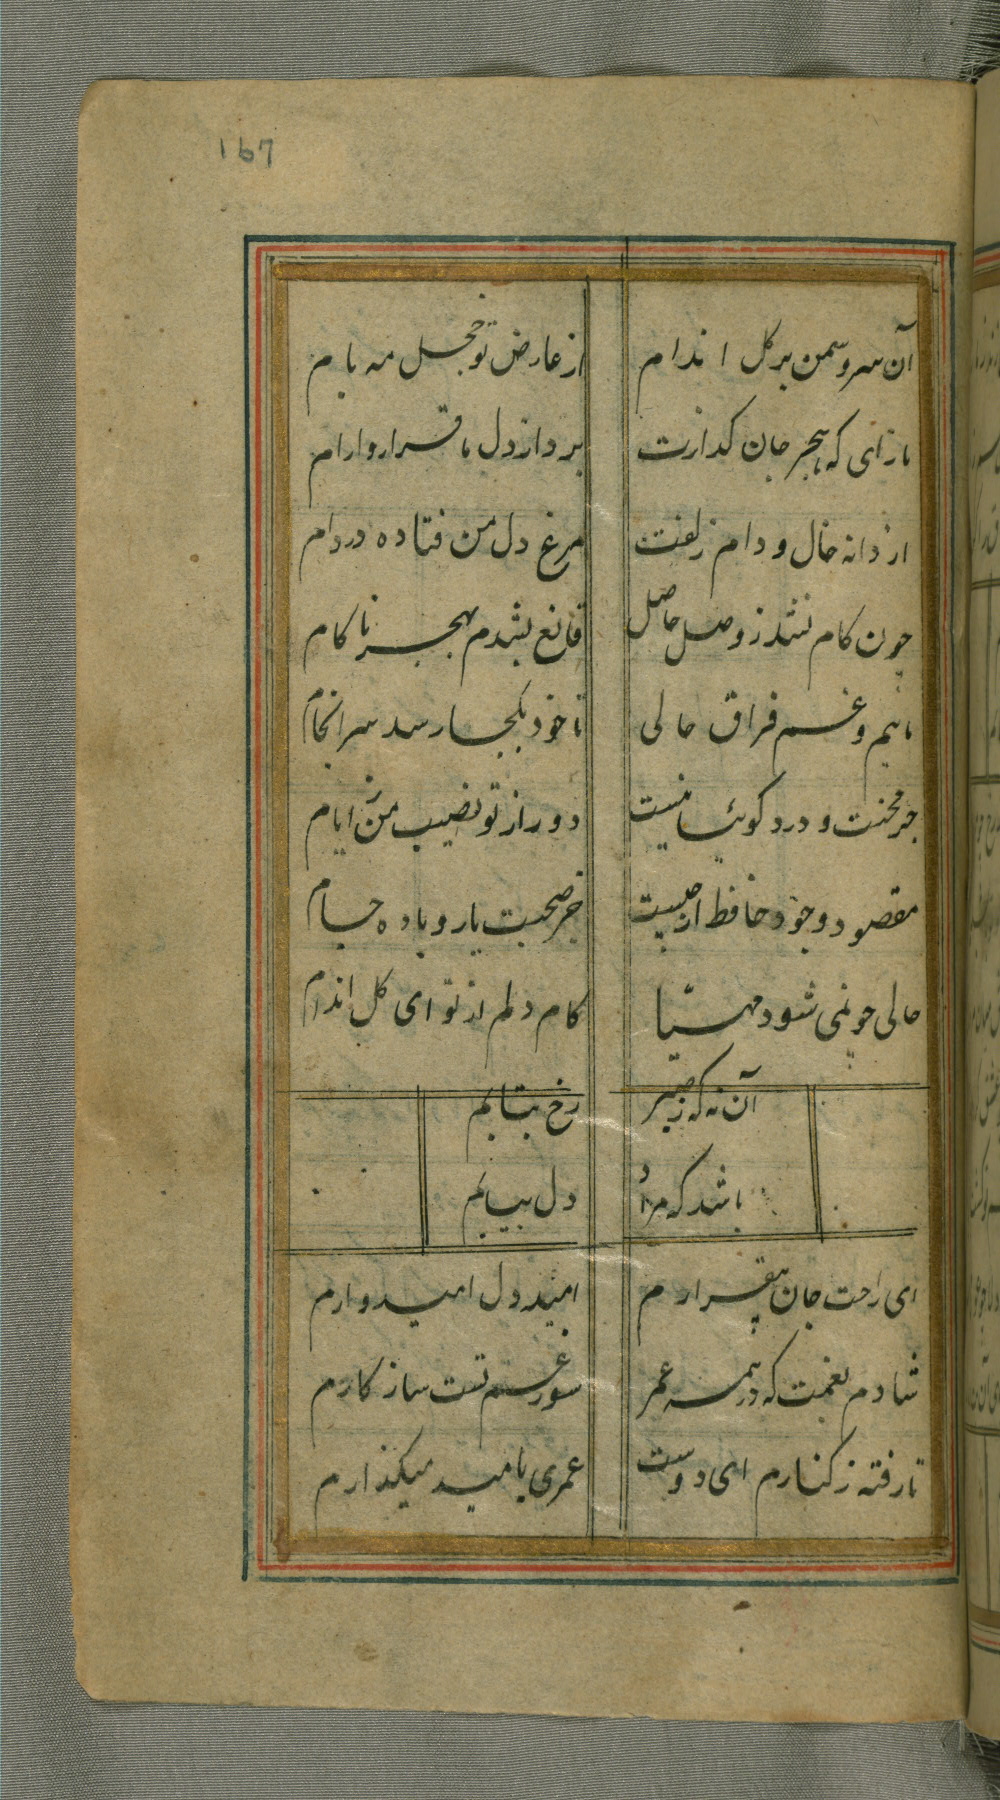 167
آن سرو سمن بر گل اندام از عارض تو خجل مه بام
بازای که هجر جان گدازت برد از دل ما قرار و ارام
از دانه خال و دام زلفت مرغ دل من فتاده در دام
چون کام نشد ز وصل حاصل قانع بشدم بهجر ناکام
مائیم و غم فراق حالی تا خود بکجا رسد سرانجام
جز محنت و درد گوئیا نیست دور از تو نصیب من ز ایام
مقصود وجود حافظ از چیست جز صحبت یار و باده جام
حالی چو نمی شود مهیّا کام دلم از تو ای گل اندام
آن نه که ز صبر رخ بتابم
باشد که مراد دل بیابم
ای راحت جان بیقرارم امید دل امیدوارم
شادم بغمت که در همه عمر سور غم تست سازکارم
تا رفته ز کنارم ای دوست عمری بامید میگذارم